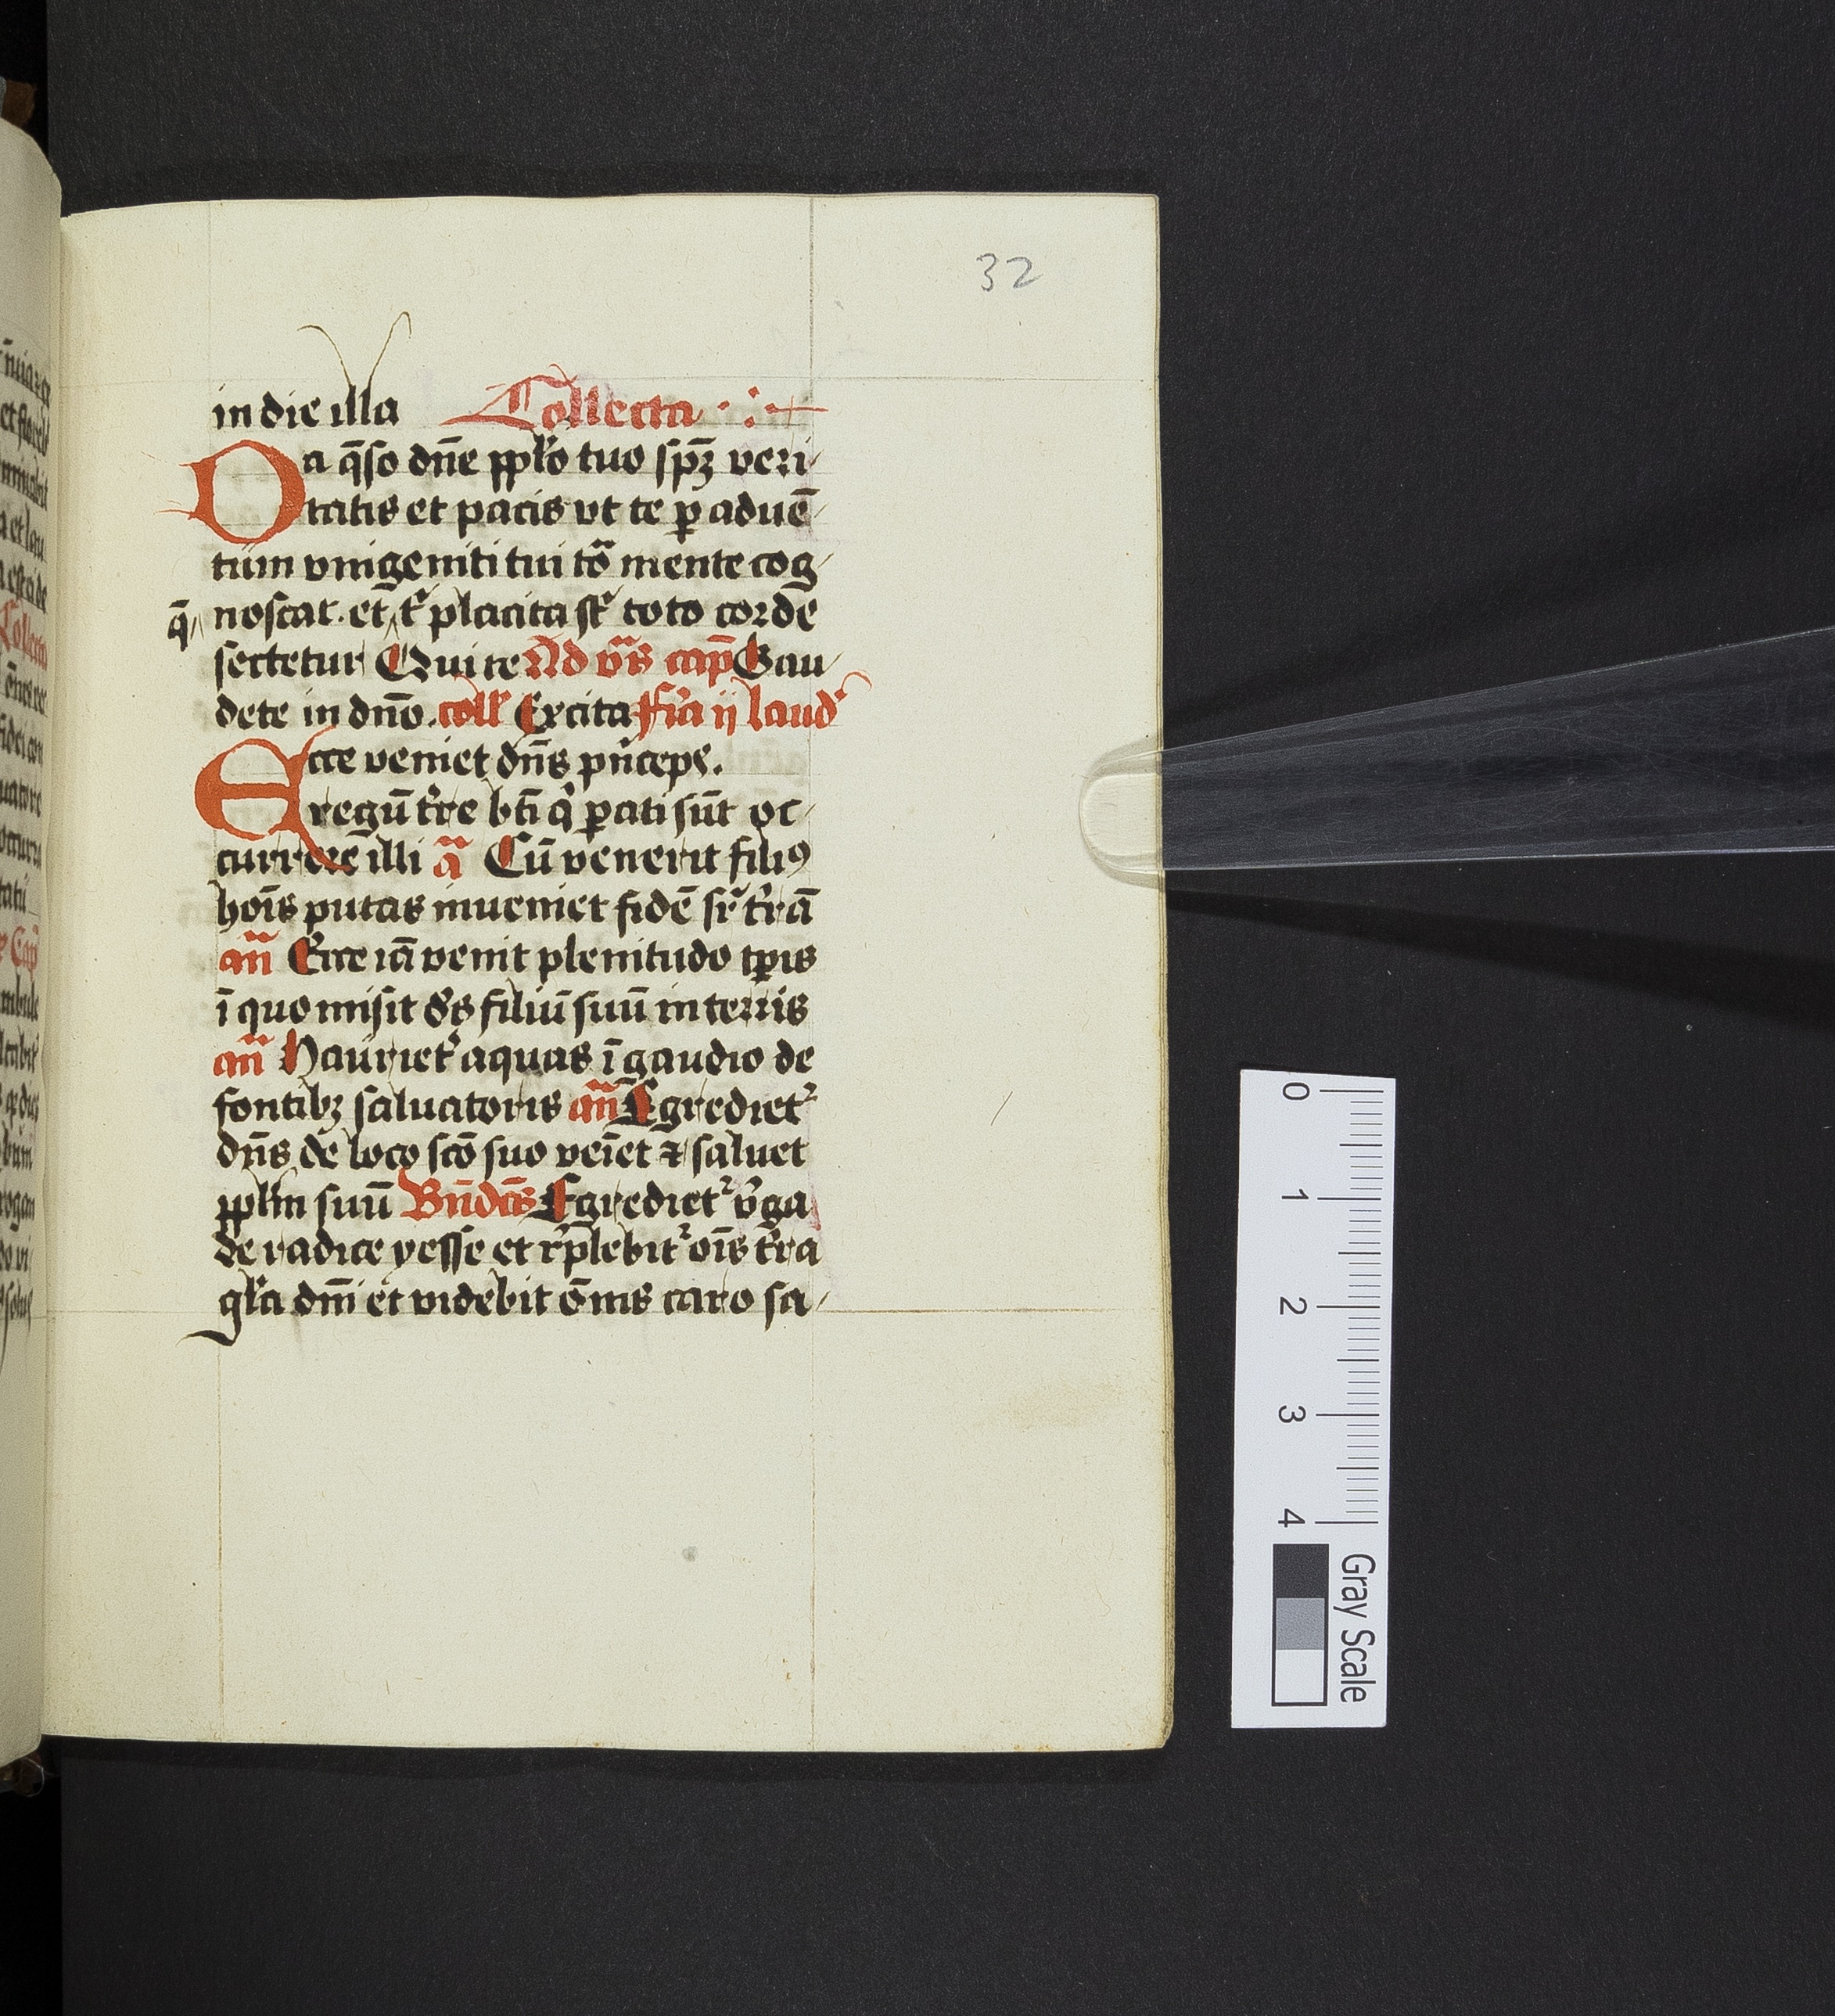 32
in die illa Collecta
Da q̄so dn̄e ppl̓o tuo sp̄ꝫ veri
tatis et pacis vt te ꝑ aduē
tum vnigeniti tui tōa mente cog
q̄ noscat. et t̓ placita st̓ toto corde
sectetur Qui te Ad vr̄s cap̄ Gau
dete in dn̄o. coll̓ Excita Fr̓ia ij laud̓
Ecce veniet dn̄s pn̓ceps.
regū tr̓re bt̄i q̓ ꝑati sūt oc
currere illi a̅ Cū venerit filiꝯ
hoīs putas inueniet fidē sr̓ tr̓rā
an̄ Ecce iā venit plenitudo tꝑis
ī quo misit de̓s filiū suū in terris
an̄ Hauriet̓ aquas ī gaudio de
fontibꝫ saluatoris an̄ Egrediet̓
dn̄s de loco scō suo veīet ⁊ saluet
ppl̓m suū Bn̄dc̄s Egrediet̓ v̓ga
de radice yesse et r̓plebit̓ oīs tr̓ra
gl̓a dn̄i et videbit ōnis caro sa
0
1
2
3
4
Gray Scale